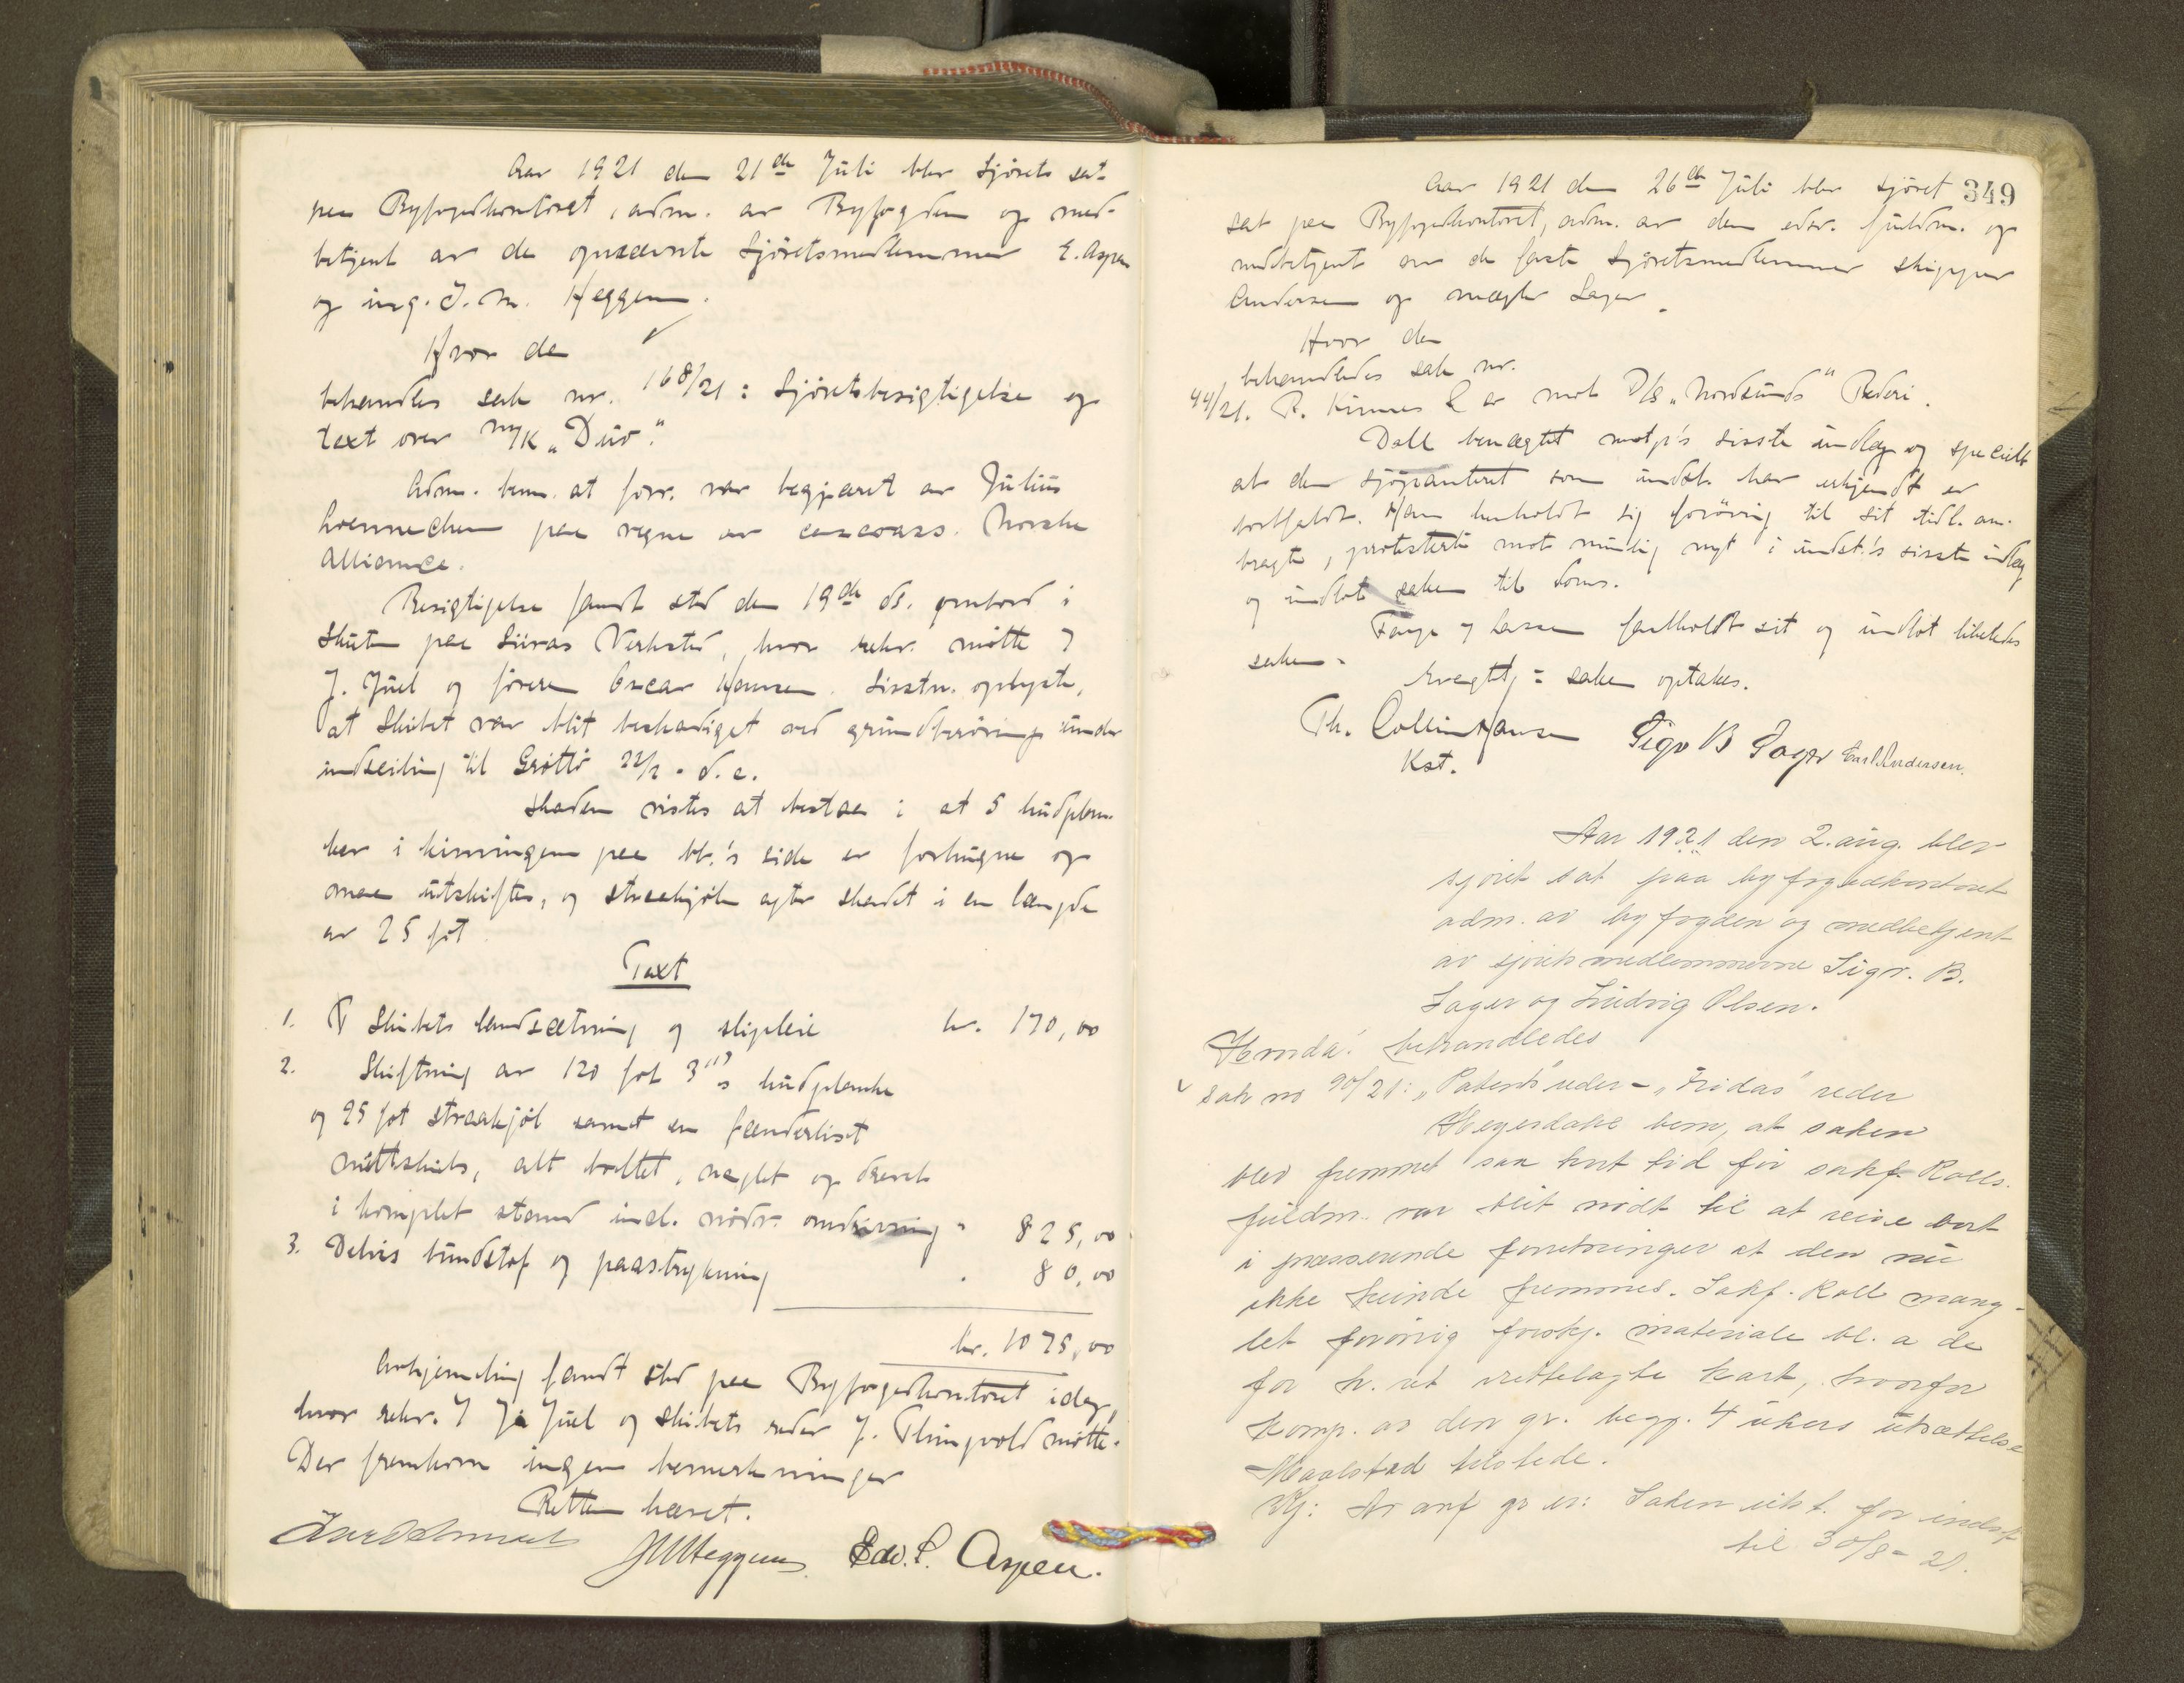 Aar 1921 den 21de Juli blev Sjöret sat
paa Byfogedkontoret, adm. av Byfogden og med-
betjent av de opnævnte Sjöretsmedlemmer E. Aspen
og ing. J. M. Heggum.
Hvor da
behandles sak nr. 168/21: Sjöretsbesigtigelse og
taxt over M/K "Duo".
Adm. bem. at forr. var begjæret av Julius
paa vegne av cascoass. Norske
Alliance.
Besigtigelse fandt sted den 19de ds. ombord i
Skuten paa Verksted, hvor rekv. mötte v
J. Juel og föreren Oscar Hansen. Sisstn. oplyste,
at Skibet var blit beskadiget ved grundberöring under
indseiling til Grøttö 22/2 d. a.
Skaden vistes at bestaa i at 5 hudplan-
ker i kimmingen paa bb.'s side er forhugne og
maa utskiftes, og straakjöl agter skadet i en længde
av 25 fot.
Taxt
1. Skibets landsætning og slipleie kr. 170,00
2. Skiftning av 120 fot 3"s hudplanke
og 25 fot straakjöl samt en fenderlist
mittskibs, alt boltet, naglet og drevet
i komplet stand incl. nödv. omdrivning " 825,00
3. Delvis bundstof og paastrykning " 80,00
kr. 1075,00
Avhjemling fandt sted paa Byfogedkontoret idag,
hvor rekv. v J. Juel og skibets reder J. mötte.
Der fremkom ingen bemerkninger
Retten hævet.
JMHeggum Edv. P. Aspen.
349
Aar 1921 den 26de Juli blev sjöret
sat paa Byfogedkontoret, adm. av den edsv. fuldm. og
medbetjent av de faste Sjöretsmedlemmer skipper
Andersen og mægler Lager.
Hvor da
behandledes sak nr.
44/21. R. Kinnes & er mot D/S "Nordsunds" Rederi.
Doll benægtet motp's sisste indlæg og specielt
at den sjöpanteret som indst. har erkjendt er
bortfaldt. Han henholdt sig forövrig til sit tidl. an-
bragte, protesterte mot mulig nyt i indst.'s sisste indlæg
og indlot saken til doms.
fastholdt sit og indlot likeledes
saken.
Avsagt: saken optakes.
Th. Collin Hansen Sigv B Lager Earl Andersen.
Kst.
Aar 1921 den 2. aug. blev
sjöret sat paa byfogedkontoret
adm. av byfogden og medbetjent
av sjöretsmedlemmerne Sigv. B.
Lager og Ludvig Olsen.
Hvorda behandledes
sak no 90/21: "Patents" reder - "Fridas" reder
Hegerdahl bem, at saken
blev fremmet saa kort tid för sakf. Rolls
fuldm. var blit nödt til at reise bort
i presserende forretninger at den nu
ikke kunde fremmes. Sakf. Roll mang-
let forövrig forskj. materiale bl. a de
for h. ret fremlagte kart, hvorfor
komp. av den gr. begj. 4 ukers utsættelse
Haalstad tilstede.
Kj: Av anf gr er: Saken utst. for indst
til 30/8-21.